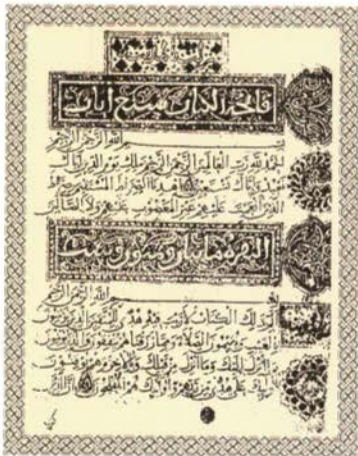 فاتحة الكتاب سبع ايات
بسم الله الرحمن الرحيم
الحمد لله رب العالمين الرحمن الرحيم ملك يوم الدين اياك
نعبد واياك نستعين اهدنا الصراط المستقيم صراط
الذين انعمت عليهم غير المغضوب عليهم ولا الضالين
البقرة مايتان
بسم الله الرحمن الرحيم
الم ذلك الكتاب لا ريب فيه هدى للمتقين الذين يؤمنون
بالغيب ويقيمون الصلاة ومما رزقناهم ينفقون والذين يؤمنون
بما انزل اليك وما انزل من قبلك وبالاخرة هم يوقنون
اولئك على هدى من ربهم واولئك هم المفلحون ان الذين